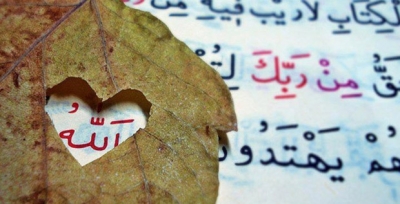 الْكِتَابِ لَا رَيْبَ فِيهِ مِنْ
مِنْ رَبِّكَ
يَهْتَدُو
اَللّٰهُ